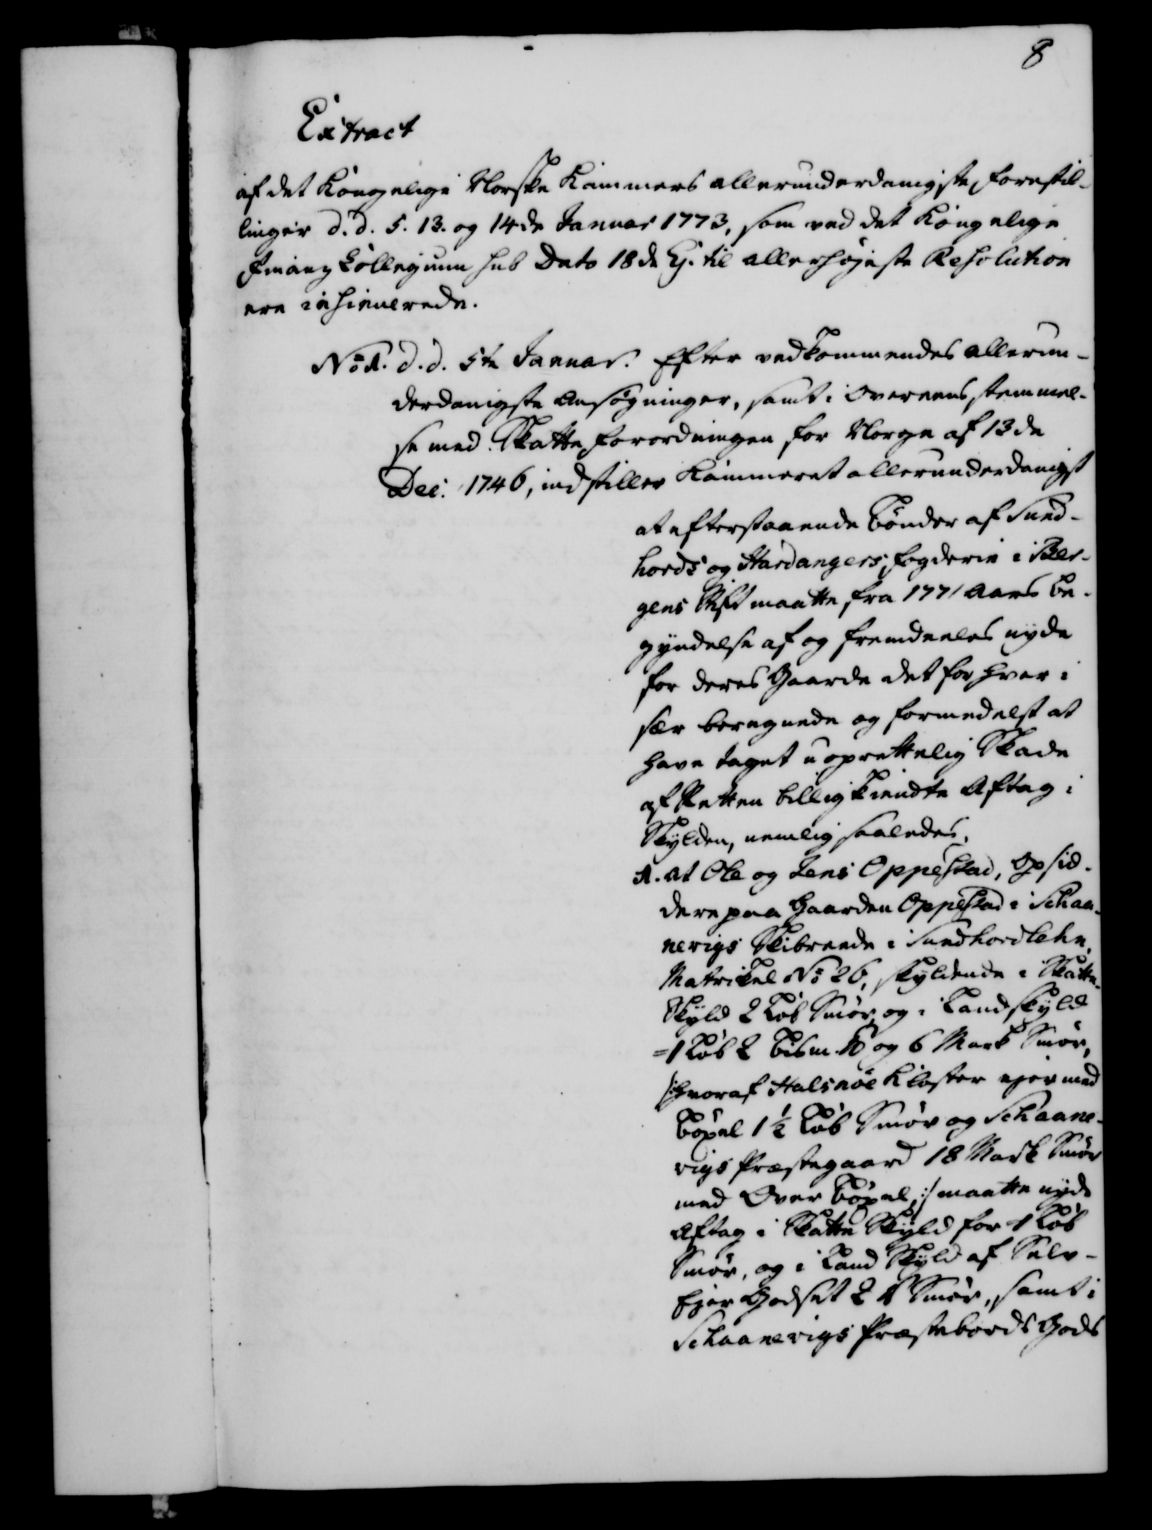 8
Extract
af det Kongelige Norske Kammers allerunderdanigste forestil-
linger d. d. 5. 13. og 14de Januar 1773, som ved det Kongelige
Finanz Collegium sub Dato 18de Ej. til allerhøjeste Resolution
ere insinuerede.
No 1. d. d. 5te Januar. Efter vedkommendes allerun-
derdanigste Ansøgninger, samt i Overeensstemmel-
se med Skatte forordningen for Norge af 13de
Dec: 1746, indstiller Kammeret allerunderdanigst
at efterstaaende Bønder af Sund-
hords og Hardangers fogderie i Ber-
gens Stift maatte fra 1771 Aars Be-
gyndelse af og fremdeeles nyde
for deres Gaarde det for hver i
sær beregnede og formedelst at
have taget uoprettelig Skade
af Retten billigkiendte Aftag i
Skylden, nemlig saaledes,
1. at Ole og Jens Oppestad, Opsid-
dere paa Gaarden Oppestad i Schaa-
nevigs Skibreede i Sundhordlehn,
Matrikel No 26, skyldende i Skatte-
Skyld 2 Løb Smør, og i Landskyld
1 Løb 2 Bism. ℔ og 6 Mark Smør,
/:hvoraf Halsnøe Kloster ejer med
Bøxel 1½ Løb Smør og Schaane-
vigs Præstegaard 18 Mark Smør
med Over Bøxel,:/ maatte nyde
Aftag i Skatte Skyld for 1 Løb
Smør, og i Land Skyld af Selv-
Ejer Godset 2 ℔ Smør, samt i
Schaanevigs Præstebords Gods